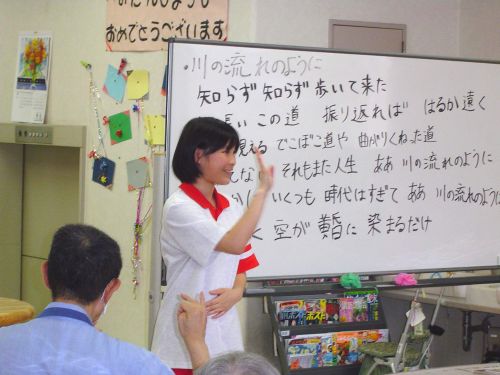 おたんじょうび
おめでとうございます
・川の流れのように
知らず知らず 歩いて来た
長い この道 振り返れば はるか遠く
見える でこぼこ道や 曲がりくねった道
ない それもまた人生 ああ 川の流れのように
いくつも 時代はすぎて ああ 川の流れのように
く 空が 黄昏に 染まるだけ